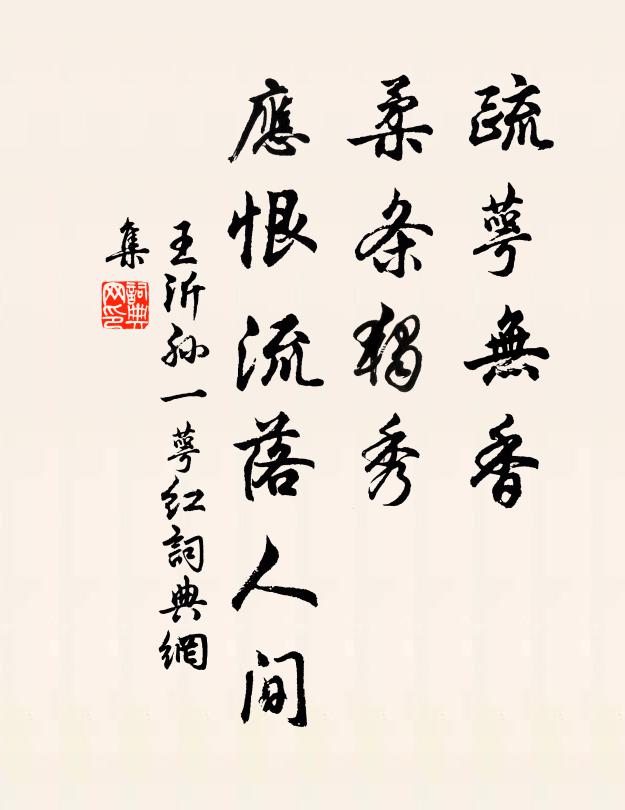 疏萼無香
柔条獨秀
應恨流落人间
王沂孙一萼红詞典網
集
詞典网印